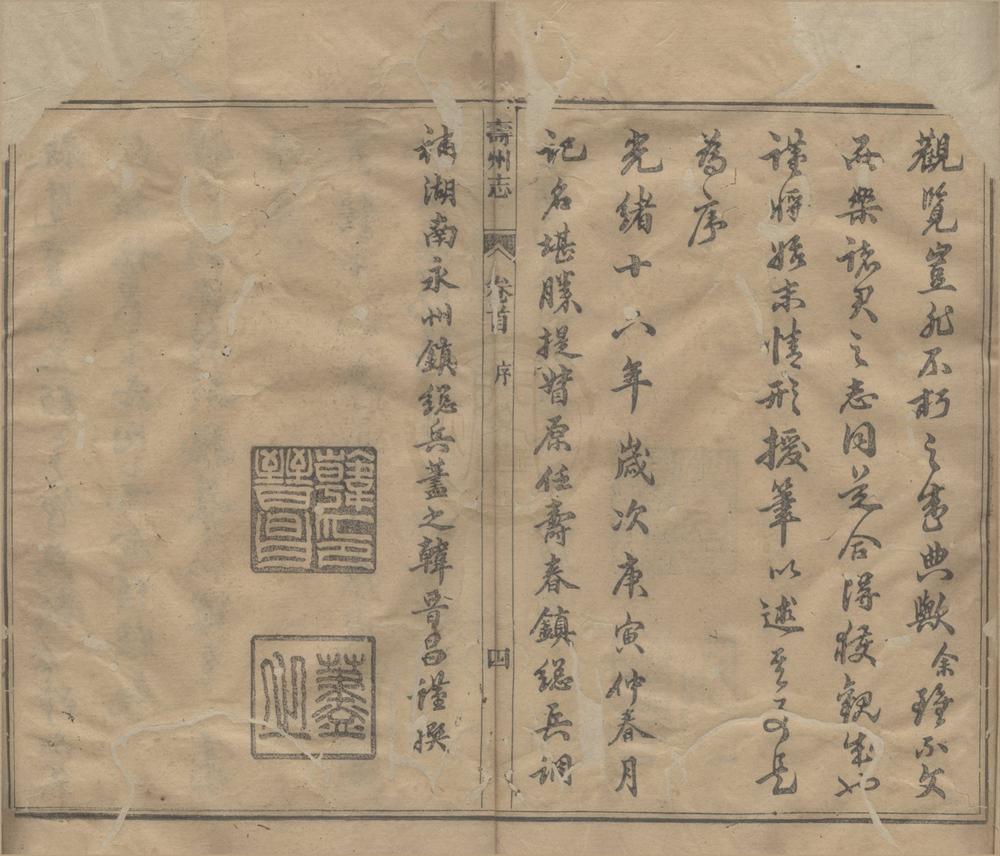 觀覽豈非不朽之盛典歟余雖不文
而樂諸君之志同道合得獲觀成也
謹將始末情形援筆以述而是
為序
光緒十六年歲次庚寅仲春月
記名堪勝提督原任壽春鎮總兵調
壽州志 卷首 序 四
補湖南永州鎮總兵藎之韓晉昌謹撰
韓印晉昌
藎之